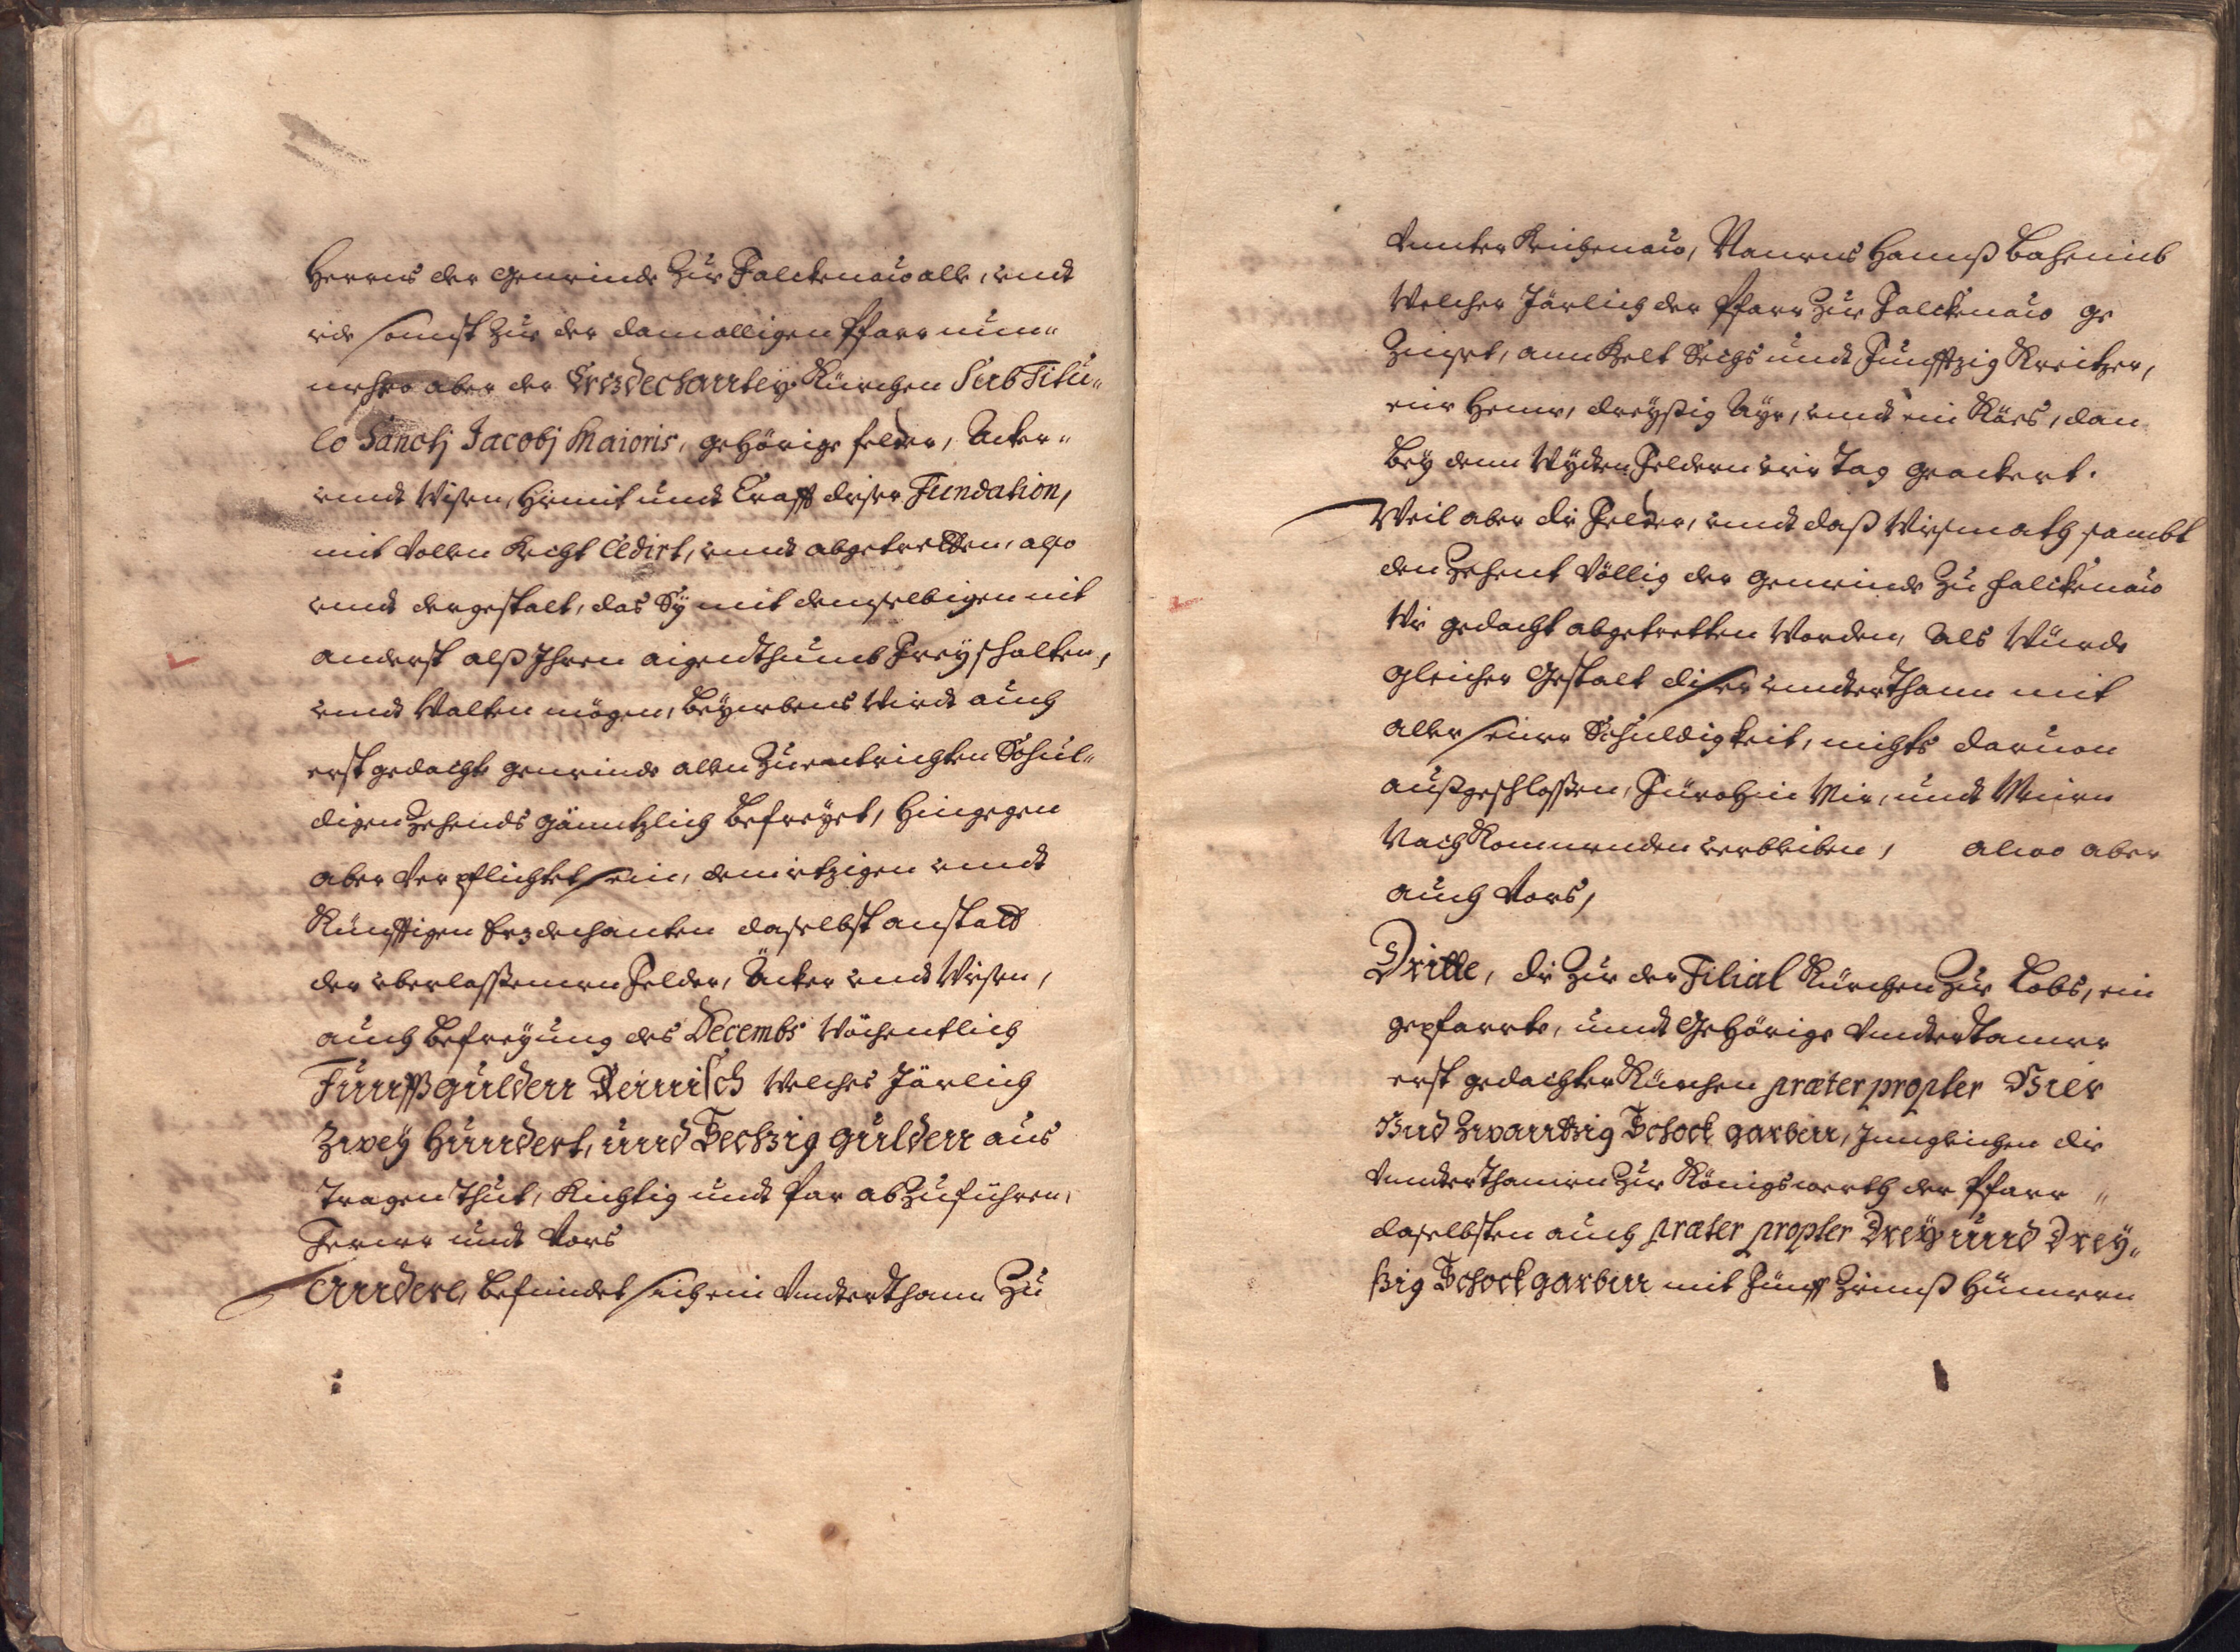 Herrns der gemeinde Zur Falckenaw alle, undt
ide sonst Zur der damalligen Pfarr nun„
mehro aber der Erzdechantey Kürchen Sub Titu„
lo Sanctj Jacobj Maioris, gehörige felder, Acker„
undt Wisen, hiemit undt Crafft diser Fundation,
mit vollen Recht Cedirt, undt abgetretten, also
undt dergestalt, das Sÿ mit demselbigen nit
anderst alß Ihren aigenthumb Freÿ schalten,
undt Walten mögen, beÿnebens Wirdt auch
erst gedachte gemeinde allen Zuentrichten Schul„
digen Zehends gänntzlich befreÿet, hingegen
aber Verpflichtet sein, dem ietzigen undt
Künfftigen Erzdechanten daselbst anstatt
der uberlassenen Felder, Äcker undt Wisen,
auch befreÿung des Decembs Wöchentlich
Fünff gulden Reinisch Welches Järlich
Zweÿ Hundert, und Sechzig gulden aus
tragen thut, Richtig undt Par abZuführen,
Ferner undt Vors
Andere, befindet sich ein Underthann Zu
Unter Reichenaw, Namens Hannß
Welcher Järlich der Pfarr Zur Falckenaw ge
Zinset, ann Gelt Sechs undt Funffzig Kreitzer,
ein Henn, dreÿßig Aÿr, undt ein Käes, dan
beÿ denn Wÿden Feldern ein Tag geackert.
Weil aber die Felder, undt daß Wismath sambt
den Zehent Völlig der gemeinde Zu Falckenaw
Wie gedacht abgetretten Worden, Als Würde
gleicher Gestalt diser underthann mit
aller seiner Schuldigkeit, nichts daruon
außgeschlossen, Fürohin Mir, undt Meinen
Nach Kommenden verbleiben, also aber
auch Vors,
Dritte, die Zur der Filial Kürchen Zur Lobs, ein
gepfarrte, undt Gehörige Underthanen
erst gedachter Kürchen præter propter Vier
Und Zwantzig Schock garben, Inngleichen die
Underthanen Zur Königswerth der Pfarr „
daselbsten auch præter propter Dreÿ und Dreÿ„
ßig Schock garben mit Fünff Zinnß Hünnern